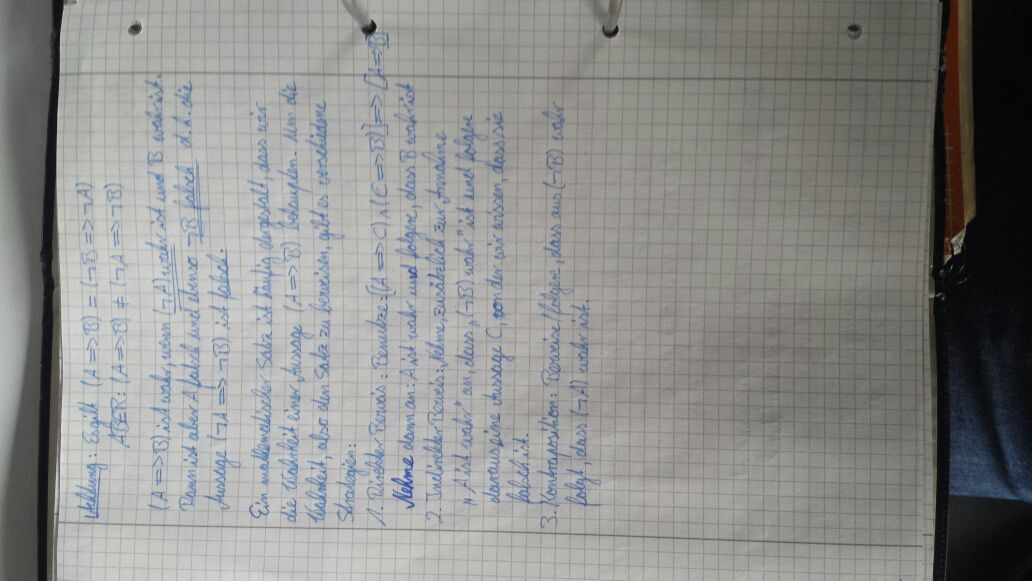 Achtung: Es gilt (A => B) = (¬B => ¬A)
ABER: (A => B) ≠ (¬A => ¬B)
(A => B) ist wahr, wenn (¬A) wahr ist und B wahr ist.
Dann ist aber A falsch und ebenso ¬B falsch d.h. die
Aussage (¬A => ¬B) ist falsch.
Ein mathematischer Satz ist häufig dargestellt dass wir
die Wahrheit einer Aussage (A => B) behaupten. Um die
Wahrheit, also den Satz zu beweisen, gibt es verschiedene
Strategien:
1. Direkter Beweis: Benutze: [(A => C) ∧ (C => B)] => [A => B]
Nehme dann an: A ist wahr und folgere, dass B wahr ist
2. Indirekter Beweis: Nehme zusätzlich zur Annahme
„A ist wahr" an, dass „(¬B) wahr" ist und folgere
daraus eine Aussage C, von der wir wissen, dass sie
falsch ist.
3. Kontraposition: Beweise/folgere, dass aus (¬B) wahr
folgt, dass (¬A) wahr ist.